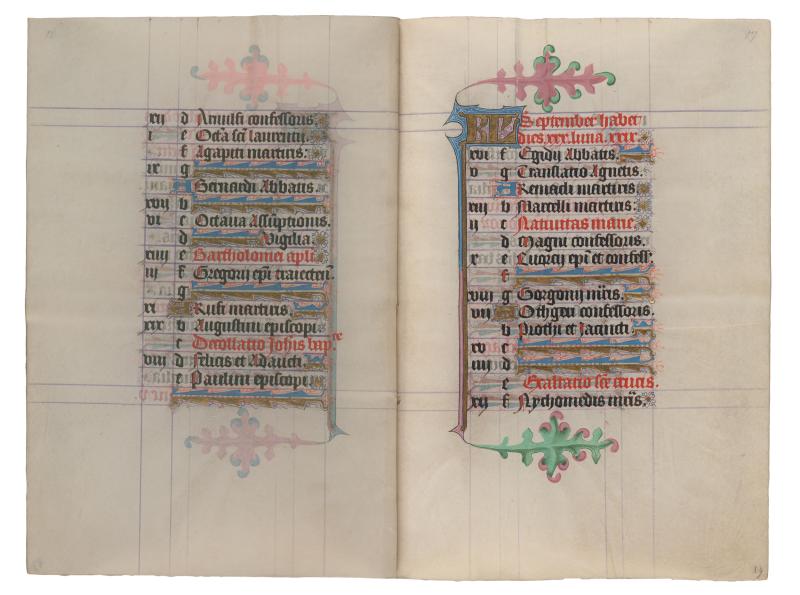 xij d Arnulfi confessoris.
i e Octā scī laurentii.
f Agapiti martiris.
ix g
A Bernardi Abbatis.
xvij b
vi c Octaua Assūptionis.
d Vigilia
xiiij e Bartholomei apli
iij f Gregorij epī traiecteñ.
g
xi A Rufi martiris.
xix b Augustini episcopi
c Decollatio Johīs bap.te
viij d Felicis et Adaucti.
e Paulini episcopi
17
KL September habet
dies xxx. luna. xxix.
xvi f Egidij Abbatis.
v g Translatio Agnetis.
A Remacli martiris
xiij b Marcelli martiris:
ij c Natiuitas marie.
d Magni confessoris.
x e Euorcij epī et confess.
f
xviij g Gorgonij mrīs.
vij A Othgeri confessoris.
b Prothi et Jacincti.
xv c
iiij d
e Exaltatio scē crucis.
xij f Nychomedis mrīs.